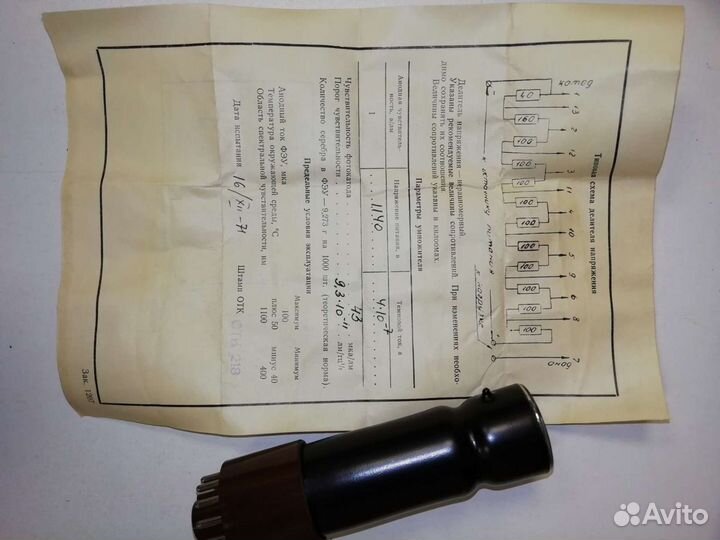 Типовая схема делителя напряжения
1 13 2 12 3 11 4 10 5 9 6 8 7
40 160 100 100 100 100 100 100 100 100 100 100
Делитель напряжения — неравномерный
Указаны рекомендуемые величины сопротивлений. При изменениях необхо-
димо сохранять их соотношения
Величины сопротивлений указаны в килоомах.
Параметры умножителя
Анодная чувствитель-
ность, а/лм
Напряжение питания, в
Темновой ток, а
1
1140
4·10⁻⁷
Чувствительность фотокатода 43 мка/лм
Порог чувствительности 9,3·10⁻¹¹ лм/гц½
Количество серебра в ФЭУ — 9,273 г на 1000 шт. (теоретическая норма).
Предельные условия эксплуатации
Максимум Минимум
Анодный ток ФЭУ, мка 100
Температура окружающей среды, °С плюс 50 минус 40
Область спектральной чувствительности, нм 1100 400
Дата испытания 16/XII-71
Штамп ОТК
ОТК 218
Зак. 1207
Avito